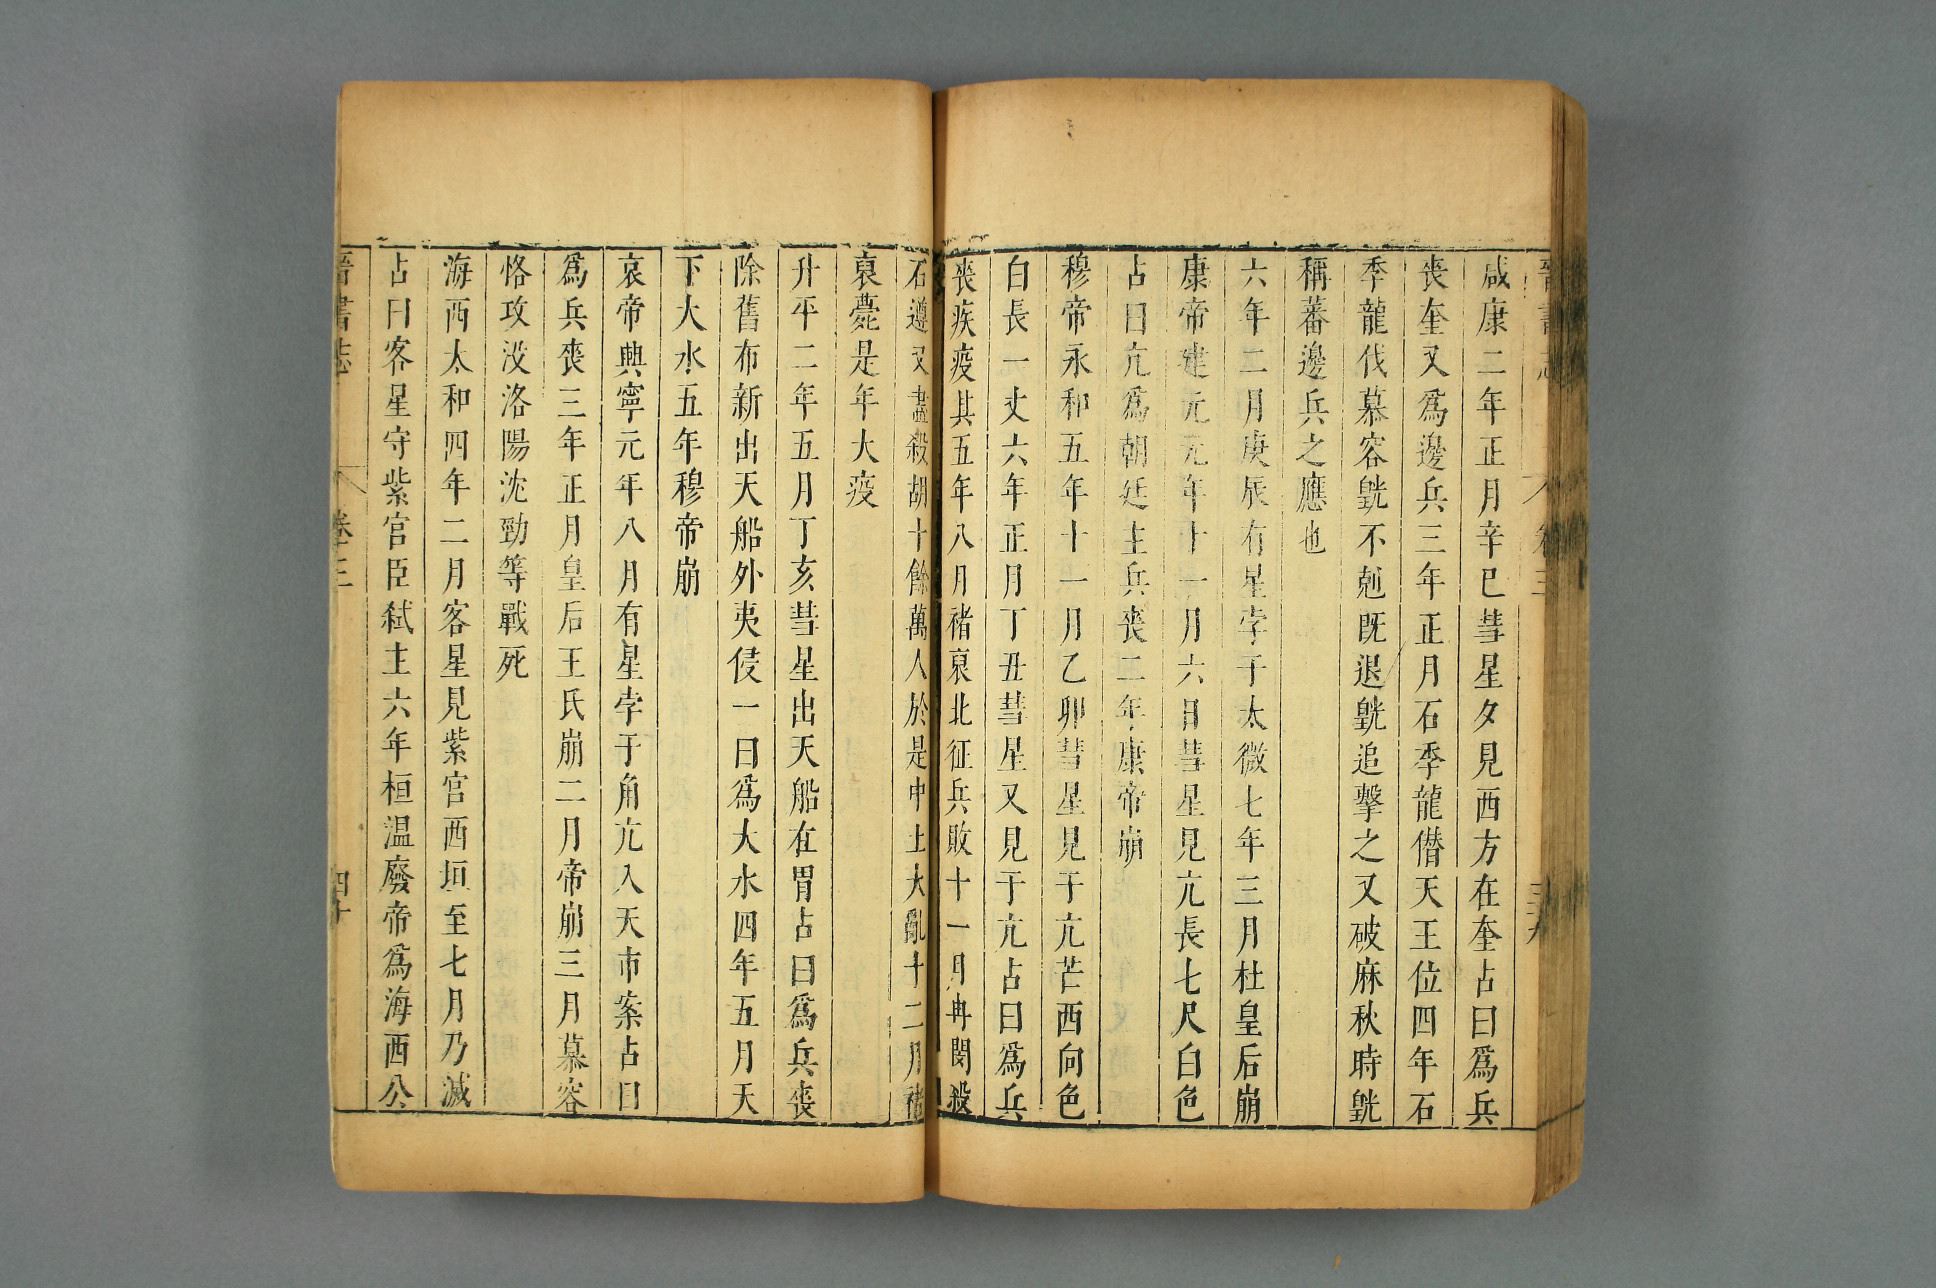 晉書志 卷三 三十九
咸康二年正月辛巳彗星夕見西方在奎占曰爲兵
喪奎又爲邊兵三年正月石季龍僭天王位四年石
季龍伐慕容皝不剋既退皝追擊之又破麻秋時皝
稱蕃邊兵之應也
六年二月庚辰有星孛于太微七年三月杜皇后崩
康帝建元元年十一月六日彗星見亢長七尺白色
占曰亢爲朝廷主兵喪二年康帝崩
穆帝永和五年十一月乙卯彗星見于亢芒西向色
白長一丈六年正月丁丑彗星又見于亢占曰爲兵
喪疾疫其五年八月褚裒北征兵敗十一月冉閔殺
石遵又盡殺胡十餘萬人於是中土大亂十二月褚
裒薨是年大疫
升平二年五月丁亥彗星出天船在胃占曰爲兵喪
除舊布新出天船外夷侵一曰爲大水四年五月天
下大水五年穆帝崩
哀帝興寧元年八月有星孛于角亢入天市案占曰
爲兵喪三年正月皇后王氏崩二月帝崩三月慕容
恪攻没洛陽沈勁等戰死
海西太和四年二月客星見紫宫西垣至七月乃滅
占曰客星守紫宫臣弑主六年桓温廢帝爲海西公
晉書志 卷三 四十